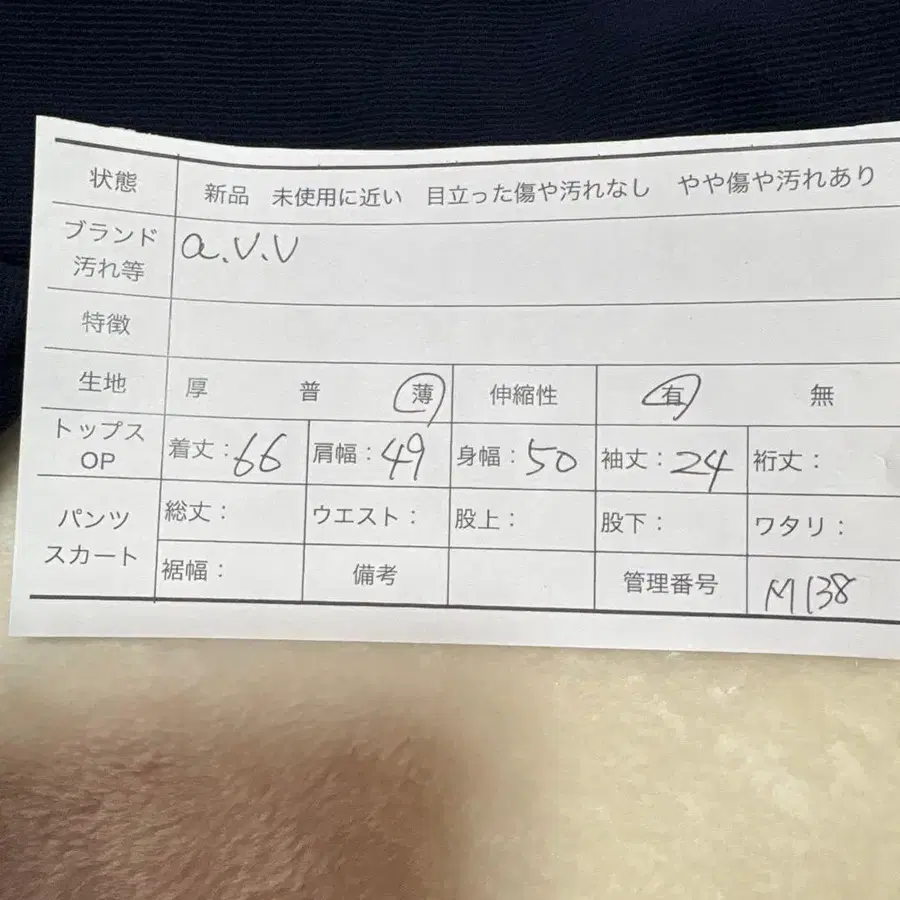 状態 新品 未使用に近い 目立った傷や汚れなし やや傷や汚れあり
ブランド a.v.v
汚れ等
特徴
生地 厚 普 薄 伸縮性 有 無
トップス
OP 着丈：66 肩幅：49 身幅：50 袖丈：24 裄丈：
パンツ 総丈： ウエスト： 股上： 股下： ワタリ：
スカート 裾幅： 備考 管理番号 M138